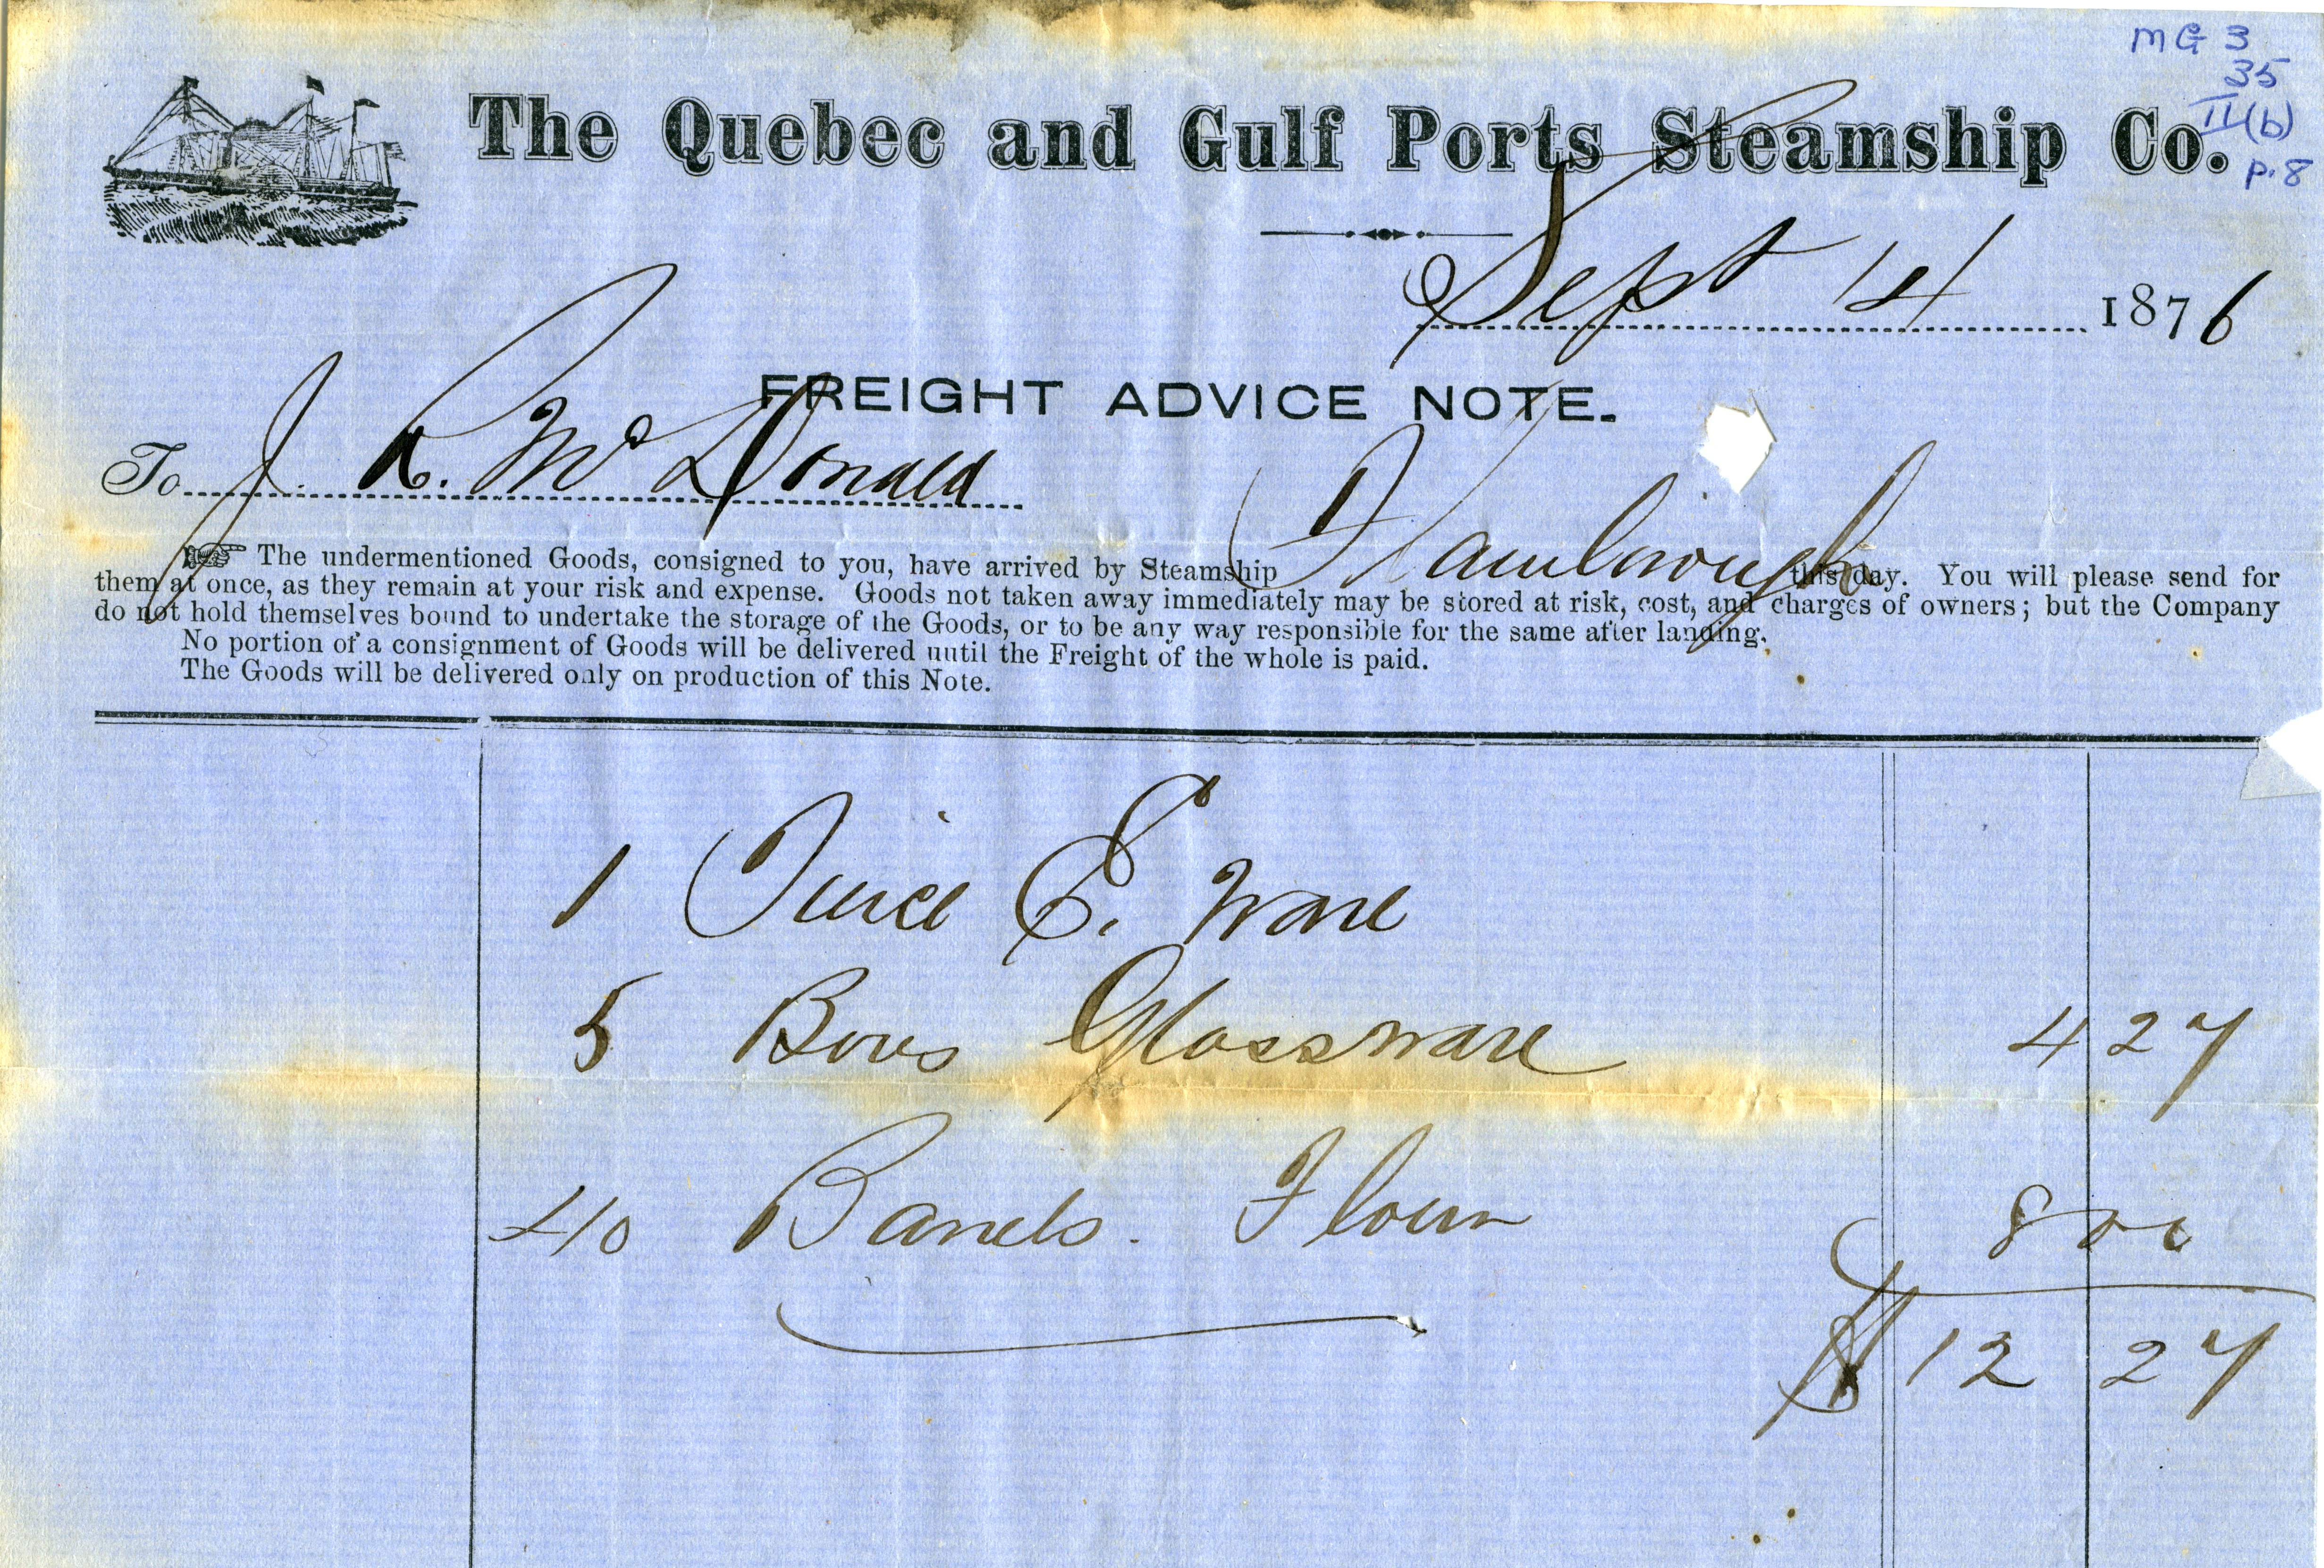 MG 3
35
II (b)
p. 8
The Quebec and Gulf Ports Steamship Co.
Sept 14 1876
FREIGHT ADVICE NOTE.
To J. A. McDonald
☞ The undermentioned Goods, consigned to you, have arrived by Steamship Flamborough this day. You will please send for
them at once, as they remain at your risk and expense. Goods not taken away immediately may be stored at risk, cost, and charges of owners; but the Company
do not hold themselves bound to undertake the storage of the Goods, or to be any way responsible for the same after landing.
No portion of a consignment of Goods will be delivered until the Freight of the whole is paid.
The Goods will be delivered only on production of this Note.
1 E. Ware
5 Boxes Glassware 4 27
40 Barrels. Flour 8 00
$ 12 27